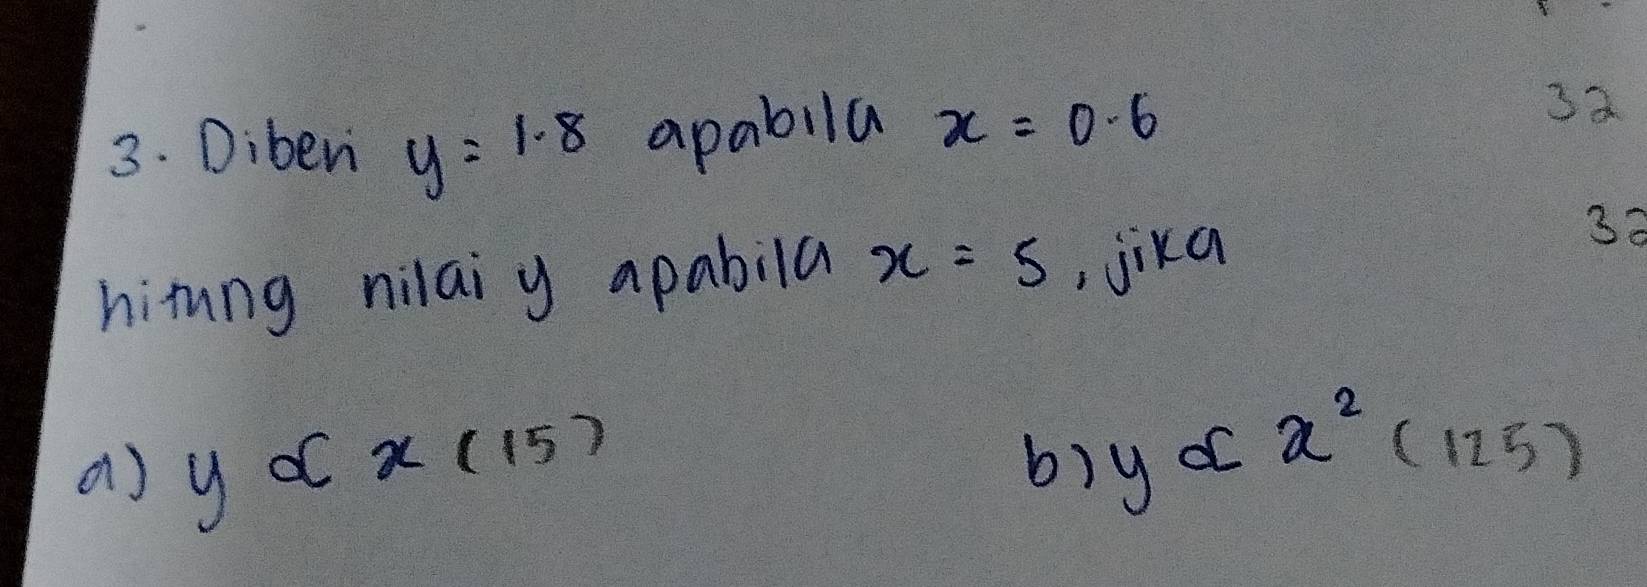 3. Diberi y = 1.8 apabila x = 0.6
32
hitung nilai y apabila x = 5, jika
32
a) y ∝ x (15)
b) y ∝ x² (125)